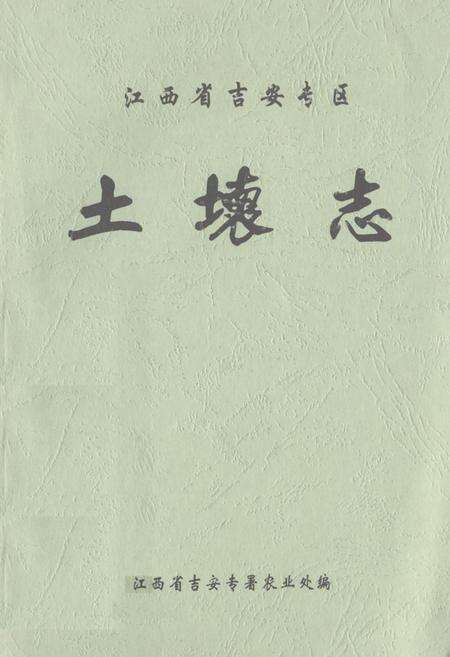 江西省吉安专区
土壤志
江西省吉安专署农业处编